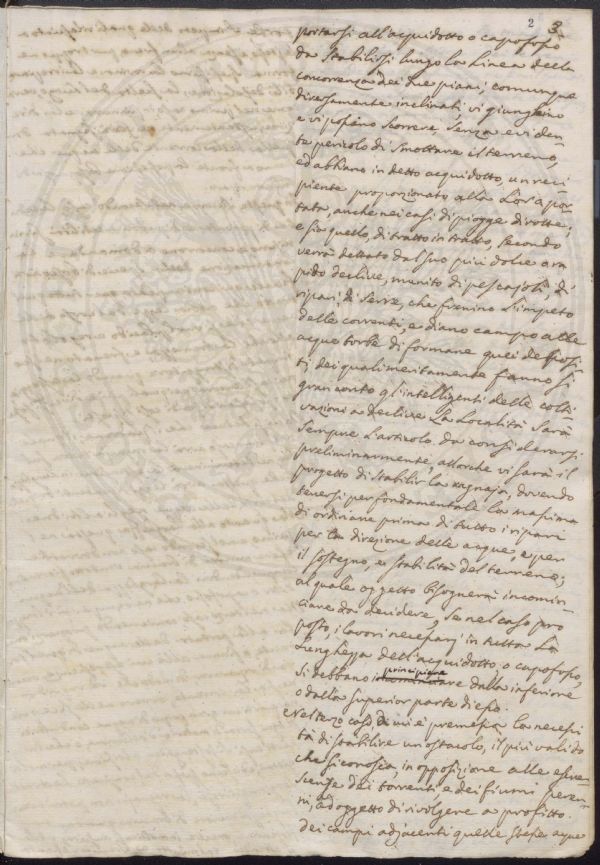 2 3
portarsi all'acquidotto o capofosso
da stabilirsi lungo la linea della
concorrenza dei due piani, comunque
diversamente inclinati, vi giunghino
e vi possano scorrere senza eviden=
te pericolo di smottare il terreno,
ed abbiano in detto acquidotto, un reci=
piente proporzionato alla loro por=
tata, anche nei casi di piogge dirotte;
e sia quello, di tratto in tratto, secondo
verrà dettato dal suo più dolce o ra
pido declive, munito di pescajoli, di
ripari di serre, che frenino l'impeto
delle correnti, e diano campo alle
acque torbe di formare quei deposi
ti dei quali meritamente fanno sì
gran conto gl'intelligenti delle colti=
vazioni a declive. La località sarà
sempre l'articolo da considerarsi
preliminarmente, allorche vi sarà il
progetto di stabilir la ragnaja, dovendo
tenersi per fondamentale la massima
di ordinare prima di tutto i ripari
per la direzione delle acque, e per
il sostegno, e stabilità del terreno;
al quale oggetto bisognerà incomin=
ciare da decidere, se nel caso pro
posto, i lavori necessarj in tutta la
lunghezza dell'acquidotto, o capofosso,
si debbano principiare dalla inferiore
o dalla superior parte di esso.
Nel terzo caso di cui è premessa la necessi
tà di stabilire un ostacolo, il più valido
che si conosca, in opposizione alle escre=
scenze dei torrenti, e dei fiumi peren=
ni, ad oggetto di rivolgere a profitto.
dei campi adjacenti quelle stesse acque